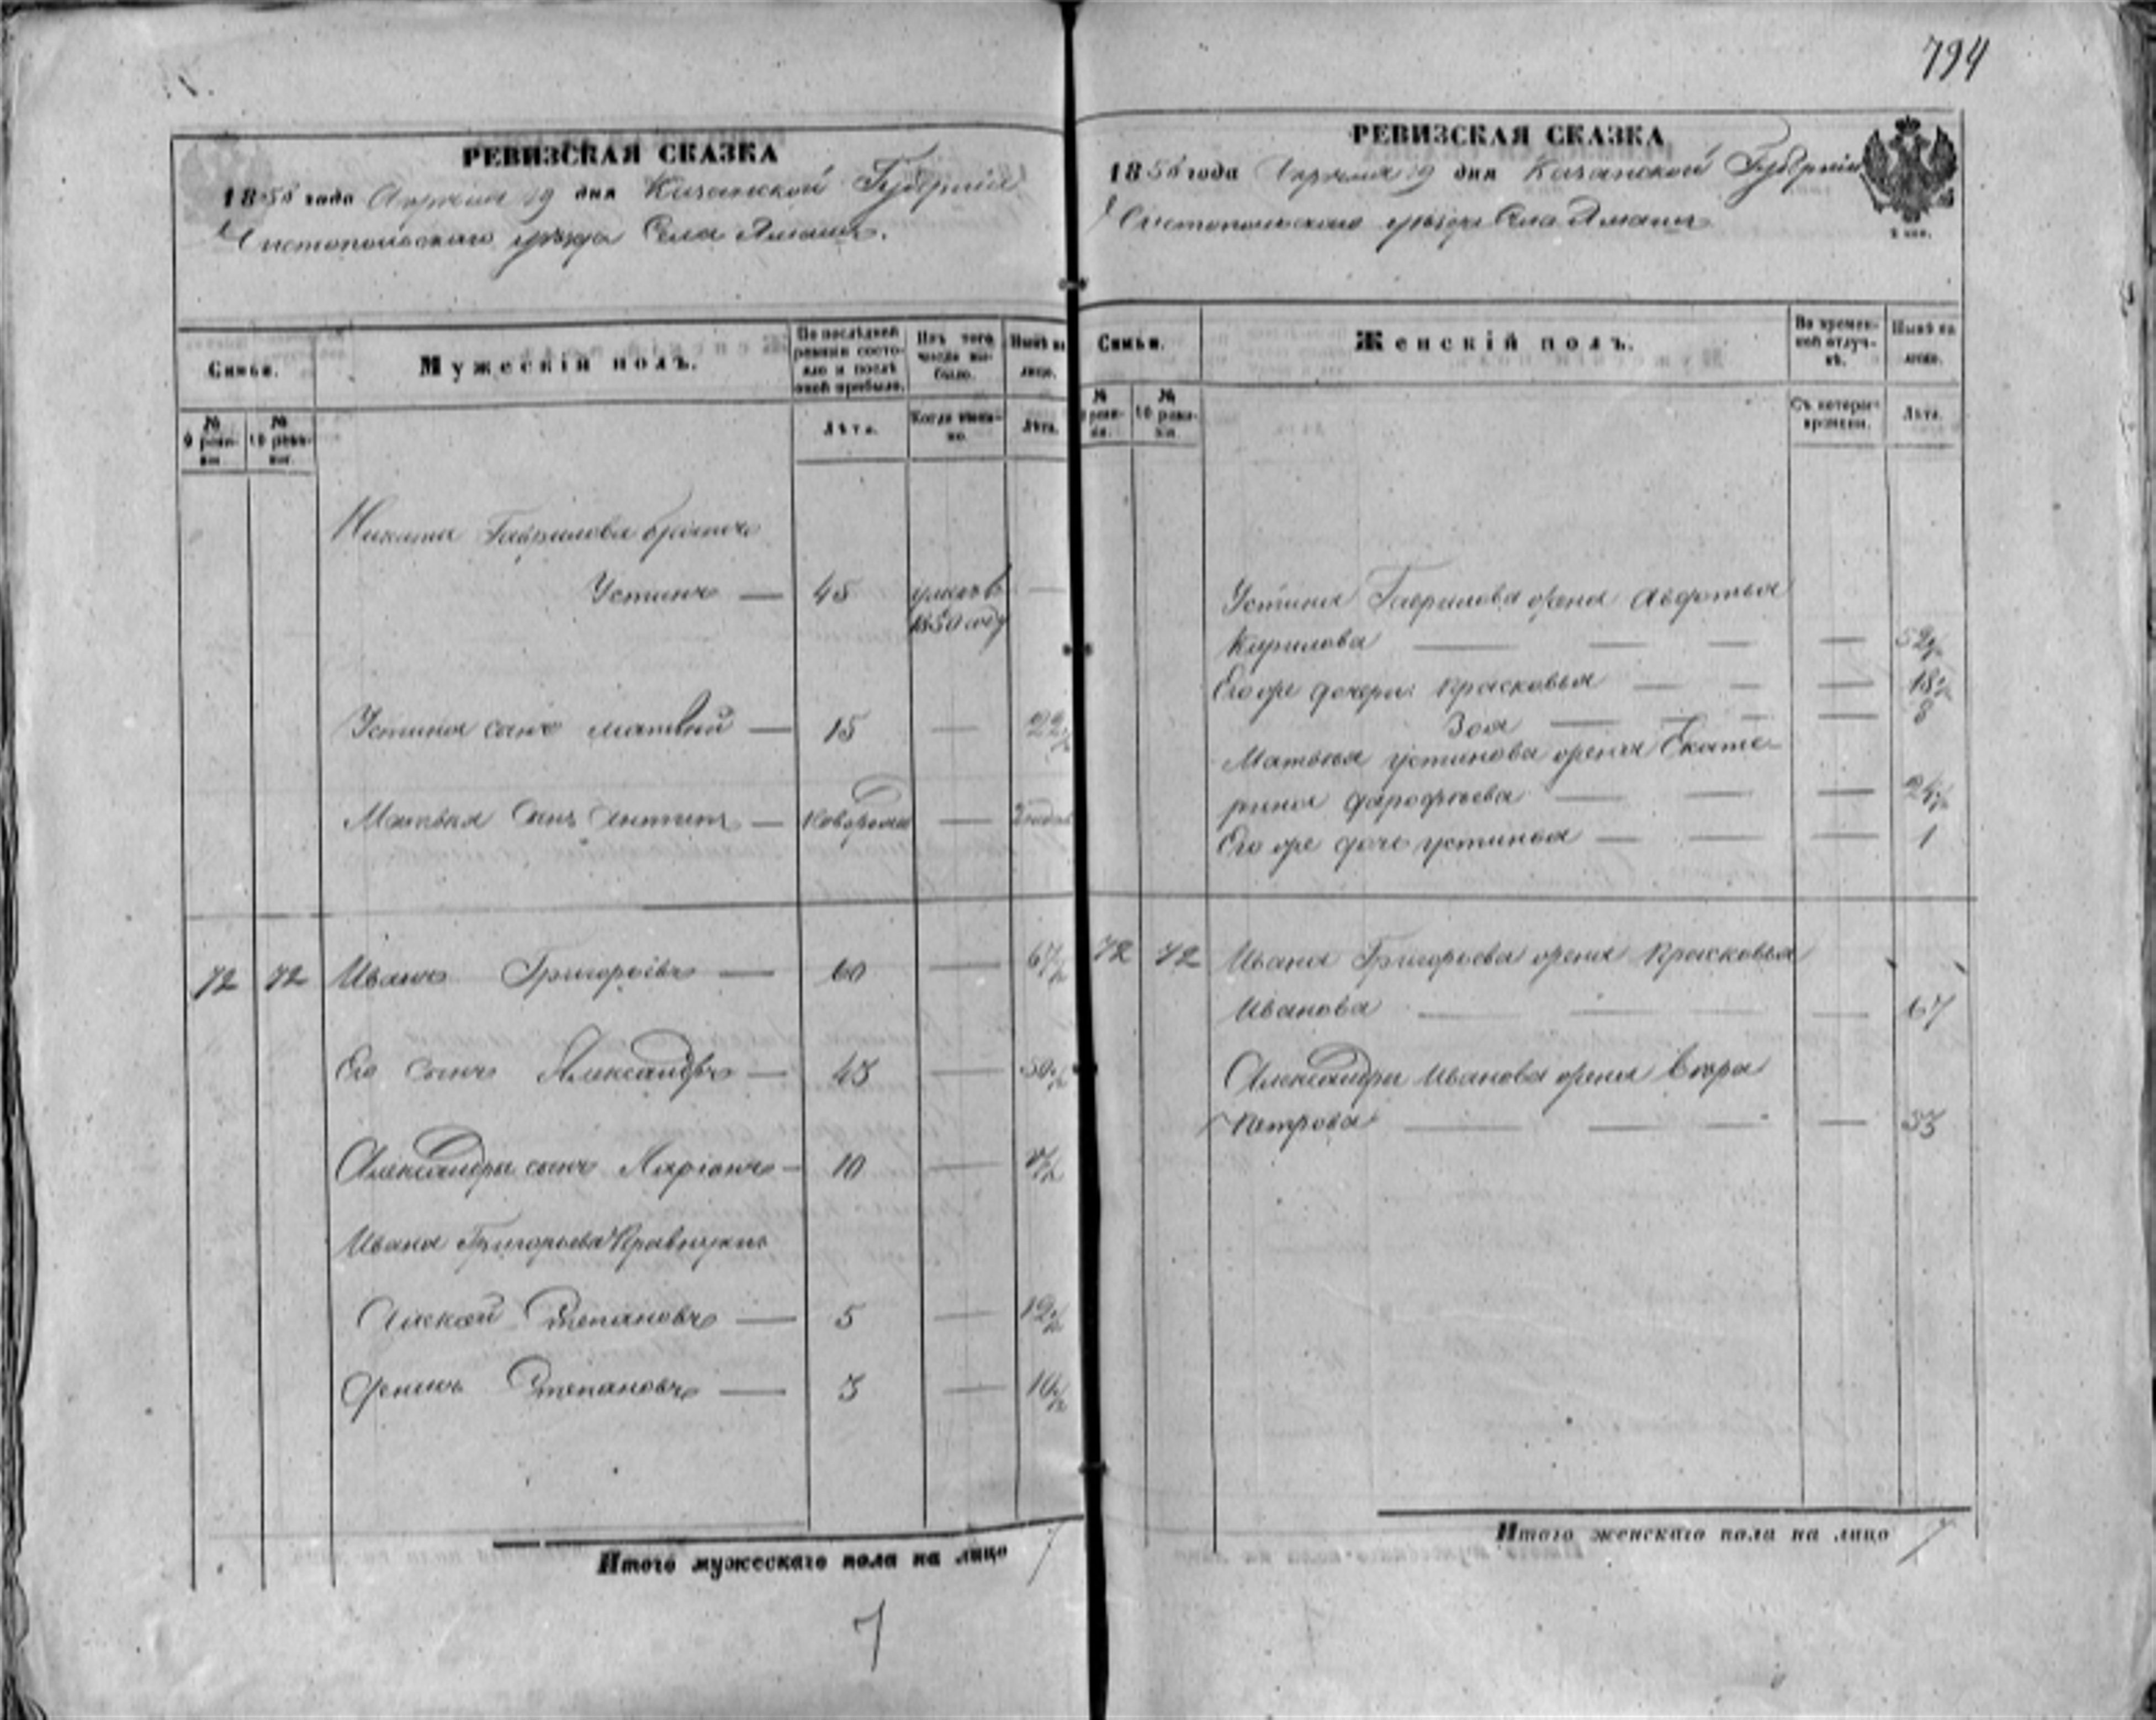 794
РЕВИЗСКАЯ СКАЗКА
1858 года Апреля 19 дня Казанской Губернiи
Чистопольскаго уѣзда Села
Семьи.
Мужескiй полъ.
По послѣдней ревизiи состояло и послѣ оной прибыло.
Изъ того числа выбыло.
Нынѣ на лицо.
№ 9 ревизiи.
№ 10 ревизiи.
Лѣта.
Когда именно.
Лѣта.
Никита Гаврилова братъ
Устинъ — 45 умеръ в —
1850 году
Устина сынъ матвей — 15 — 22 1/2
Матвея сынъ — новорож — 2
72 72 Иванъ Григорьевъ — 60 — 67 1/2
Его сынъ Александръ — 43 — 50 1/2
Александра сынъ Ларiонъ — 10 —
Ивана Григорьева Правнуки
Степановъ — 5 — 12 1/2
Степановъ — 3 — 10 1/2
Итого мужескаго пола на лицо 7
7
РЕВИЗСКАЯ СКАЗКА
1858 года Апреля 19 дня Казанской Губернiи
Чистопольскаго уѣзда Села
Семьи.
Женскiй полъ.
Во временной отлучкѣ.
Нынѣ на лицо.
№ 9 ревизiи.
№ 10 ревизiи.
Съ котораго времени.
Лѣта.
Устина Гаврилова жена Авдотья
Кирилова — — — — 52 1/2
Его же дочери: Прасковья — — — 18 1/2
Зоя — — — — 8
Матвея устинова жена Екате-
рина дарофеева — — — — 24 1/2
Его же дочь устинья — — — — 1
72 72 Ивана Григорьева жена Прасковья
Иванова — — — — 67
Александра Иванова жена вѣра
Петрова — — — — 53
Итого женскаго пола на лицо 7